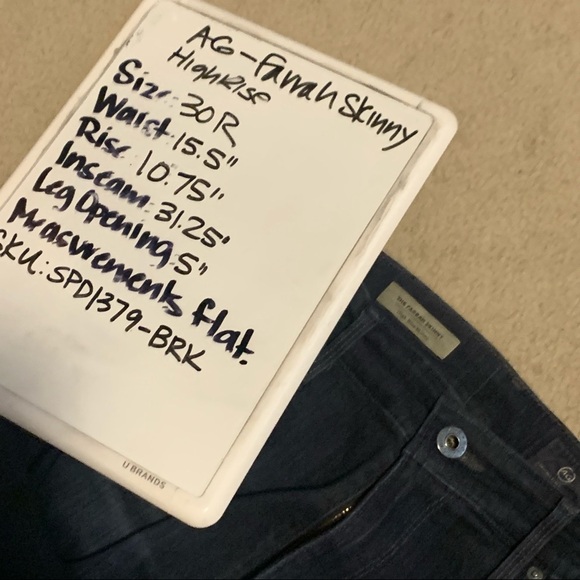 AG-Farrah Skinny
HighRise
Size: 30R
Waist: 15.5"
Rise: 10.75"
Inseam: 31.25"
Leg Opening: 5"
Measurements flat.
SKU: SPD1379-BRK
U BRANDS
THE FARRAH SKINNY
AG